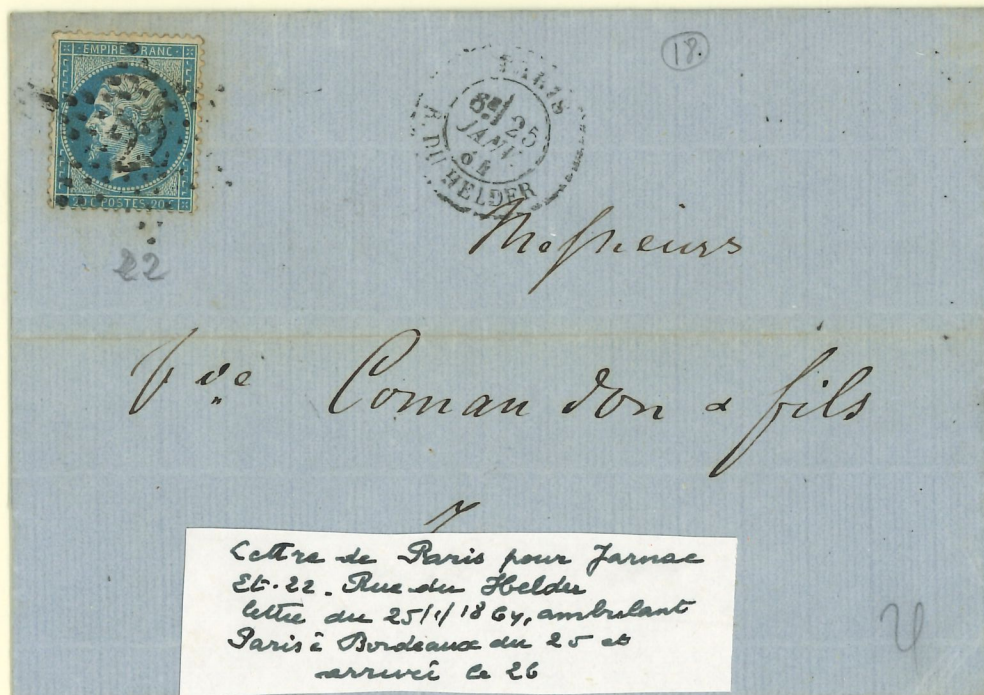 EMPIRE FRANC
20 C POSTES 20 C
22
PARIS
6E
25
JANV.
64
R. DU HELDER
18.
Messieurs
Vve Comandon & fils
J
Lettre de Paris pour Jarnac
Et. 22. Rue du Helder
lettre du 25/1/1864, ambulant
Paris à Bordeaux du 25 et
arrivée le 26